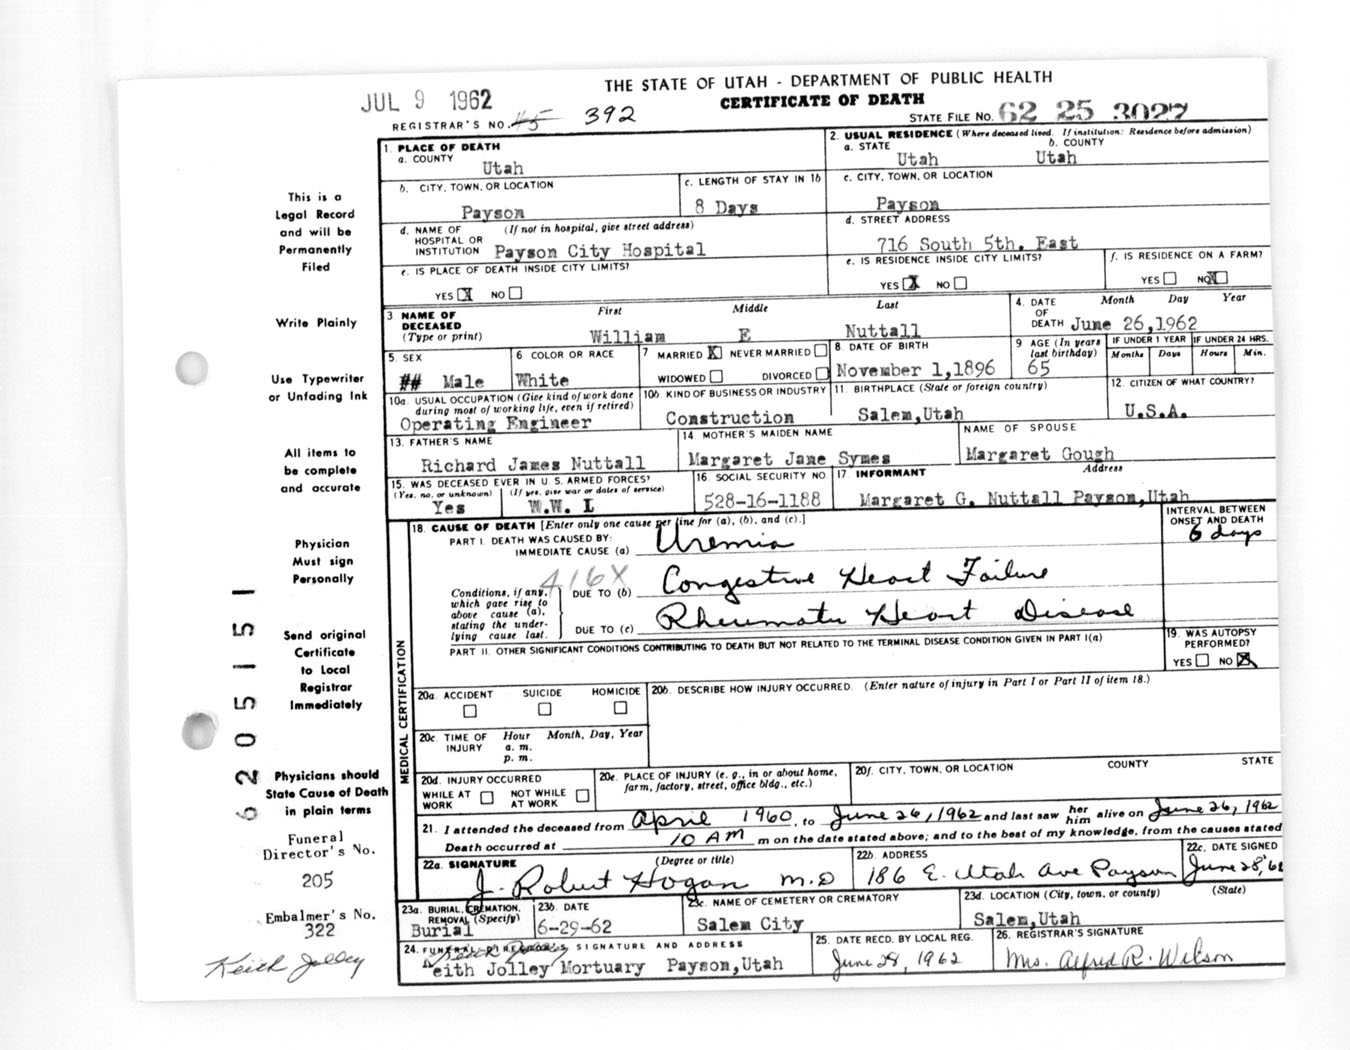 THE STATE OF UTAH - DEPARTMENT OF PUBLIC HEALTH
JUL 9 1962
CERTIFICATE OF DEATH
REGISTRAR'S NO. 45 392
STATE FILE NO. 62 25 3027
1. PLACE OF DEATH
a. COUNTY
Utah
2. USUAL RESIDENCE (Where deceased lived. If institution: Residence before admission)
a. STATE b. COUNTY
Utah Utah
b. CITY, TOWN, OR LOCATION
Payson
c. LENGTH OF STAY IN 1b
8 Days
c. CITY, TOWN, OR LOCATION
Payson
d. NAME OF (If not in hospital, give street address)
HOSPITAL OR
INSTITUTION Payson City Hospital
d. STREET ADDRESS
716 South 5th. East
e. IS PLACE OF DEATH INSIDE CITY LIMITS?
YES X NO
e. IS RESIDENCE INSIDE CITY LIMITS?
YES X NO
f. IS RESIDENCE ON A FARM?
YES NO X
3 NAME OF First Middle Last
DECEASED
(Type or print) William E Nuttall
4. DATE Month Day Year
OF
DEATH June 26,1962
5. SEX
## Male
6 COLOR OR RACE
White
7 MARRIED X NEVER MARRIED
WIDOWED DIVORCED
8 DATE OF BIRTH
November 1,1896
9 AGE (In years
last birthday)
65
IF UNDER 1 YEAR IF UNDER 24 HRS.
Months Days Hours Min.
10a. USUAL OCCUPATION (Give kind of work done
during most of working life, even if retired)
Operating Engineer
10b. KIND OF BUSINESS OR INDUSTRY
Construction
11. BIRTHPLACE (State or foreign country)
Salem,Utah
12. CITIZEN OF WHAT COUNTRY?
U.S.A.
13. FATHER'S NAME
Richard James Nuttall
14. MOTHER'S MAIDEN NAME
Margaret Jane Symes
NAME OF SPOUSE
Margaret Gough
15. WAS DECEASED EVER IN U.S. ARMED FORCES?
(Yes, no, or unknown) (If yes, give war or dates of service)
Yes W.W. I
16. SOCIAL SECURITY NO.
528-16-1188
17. INFORMANT Address
Margaret G. Nuttall Payson,Utah
MEDICAL CERTIFICATION
18. CAUSE OF DEATH [Enter only one cause per line for (a), (b), and (c).]
INTERVAL BETWEEN
ONSET AND DEATH
PART I. DEATH WAS CAUSED BY:
IMMEDIATE CAUSE (a) Uremia 6 days
416X
Conditions, if any,
which gave rise to
above cause (a),
stating the under-
lying cause last.
DUE TO (b) Congestive Heart Failure
DUE TO (c) Rheumatic Heart Disease
PART II. OTHER SIGNIFICANT CONDITIONS CONTRIBUTING TO DEATH BUT NOT RELATED TO THE TERMINAL DISEASE CONDITION GIVEN IN PART I(a)
19. WAS AUTOPSY
PERFORMED?
YES NO X
20a. ACCIDENT SUICIDE HOMICIDE
20b. DESCRIBE HOW INJURY OCCURRED. (Enter nature of injury in Part I or Part II of item 18.)
20c. TIME OF Hour Month, Day, Year
INJURY a. m.
p. m.
20d. INJURY OCCURRED
WHILE AT NOT WHILE
WORK AT WORK
20e. PLACE OF INJURY (e. g., in or about home,
farm, factory, street, office bldg., etc.)
20f. CITY, TOWN, OR LOCATION COUNTY STATE
21. I attended the deceased from April 1960, to June 26, 1962 and last saw her him alive on June 26, 1962
Death occurred at 10 AM m on the date stated above; and to the best of my knowledge, from the causes stated
22a. SIGNATURE (Degree or title)
J. Robert Hogan M.D
22b. ADDRESS
186 E. Utah Ave Payson
22c. DATE SIGNED
June 28, '62
23a. BURIAL, CREMATION,
REMOVAL (Specify)
Burial
23b. DATE
6-29-62
23c. NAME OF CEMETERY OR CREMATORY
Salem City
23d. LOCATION (City, town, or county) (State)
Salem,Utah
24. FUNERAL DIRECTOR'S SIGNATURE AND ADDRESS
Keith Jolley Mortuary Payson,Utah
25. DATE RECD. BY LOCAL REG.
June 28, 1962
26. REGISTRAR'S SIGNATURE
Mrs. Alfred R. Wilson
This is a
Legal Record
and will be
Permanently
Filed
Write Plainly
Use Typewriter
or Unfading Ink
All items to
be complete
and accurate
Physician
Must sign
Personally
Send original
Certificate
to Local
Registrar
Immediately
Physicians should
State Cause of Death
in plain terms
Funeral
Director's No.
205
Embalmer's No.
322
Keith Jolley
6205151